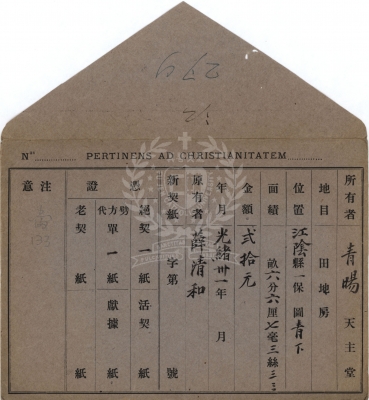 279
12
Nº ............ PERTINENS AD CHRISTIANITATEM ............
所有者 青暘 天主堂
地目 田地房
位置 江陰縣一保 圖青下
面績 畝六分六厘七毫三絲三三
金額 弍拾元
年月 光緒卅一年 月
原有者 薛清和
新契紙 字第 號
憑證
絕契一紙 活契 紙
方單一紙 獻據 紙
代勞
老契 紙
注意